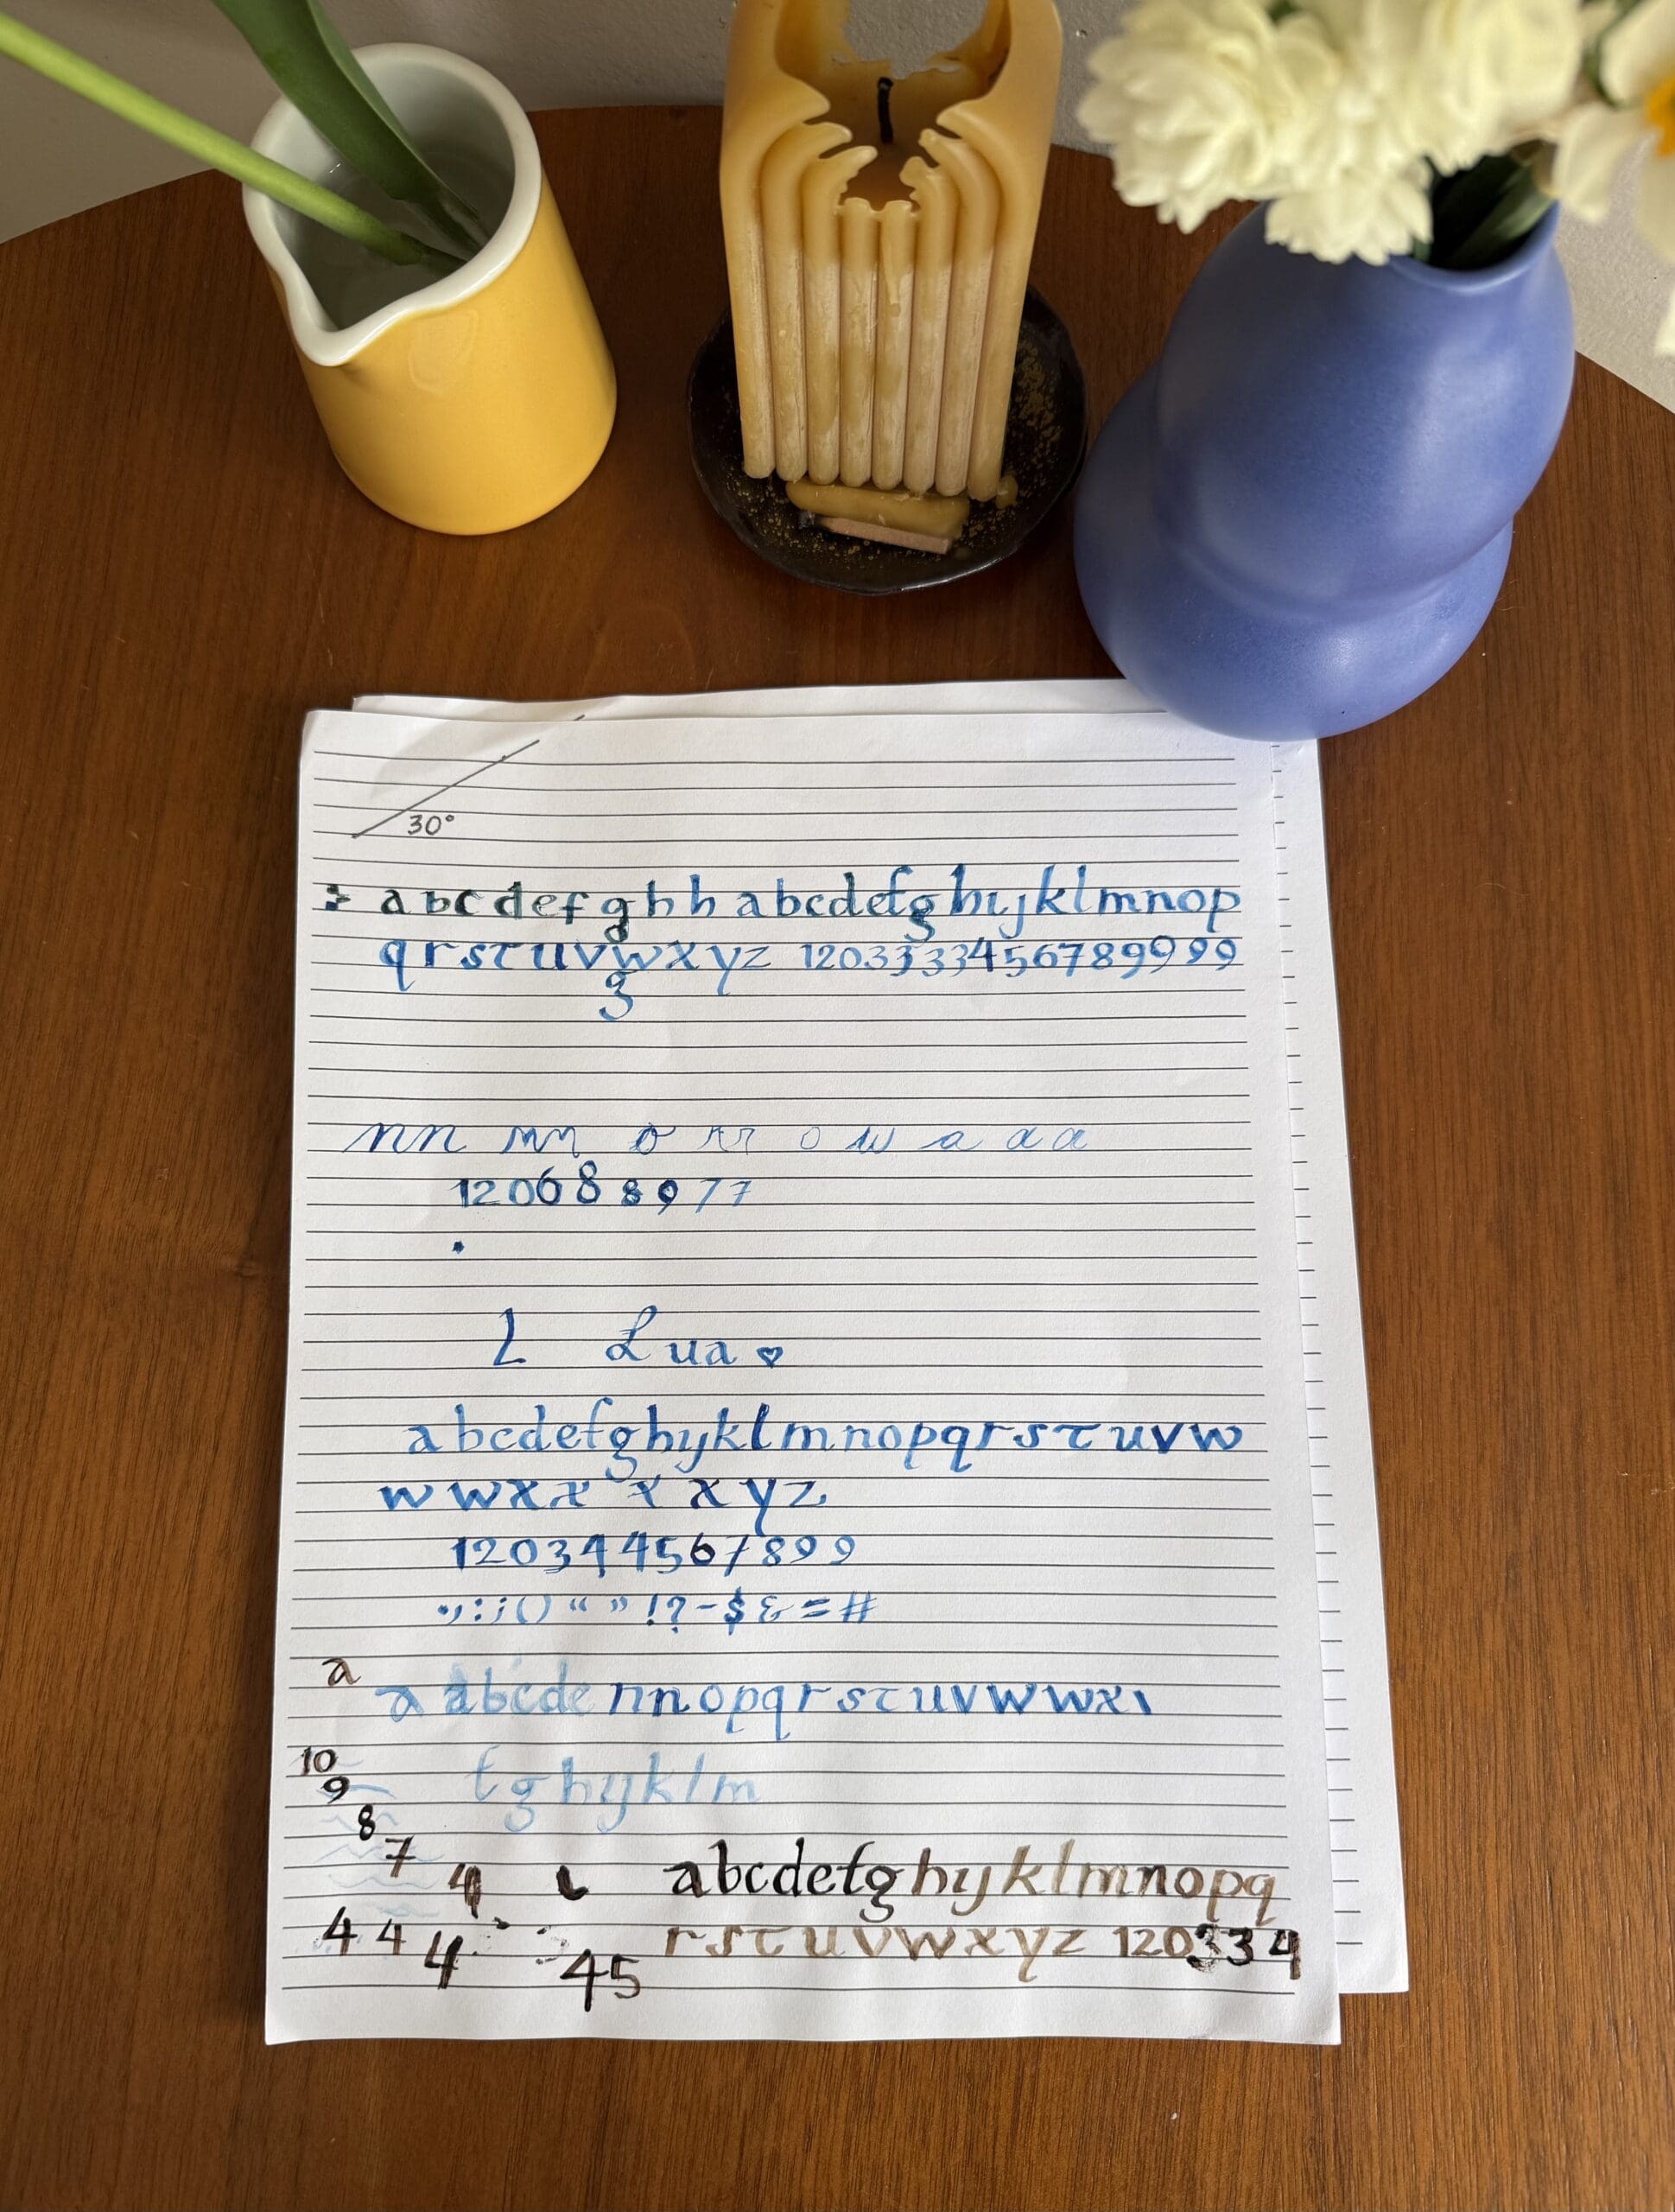 30°
a b c d e f g h h a b c d e f g h i j k l m n o p
q r s t u v w x y z 1 2 0 3 3 3 3 4 5 6 7 8 9 9 9 9 9
g
n n m n o r r o w a a a
1 2 0 6 8 8 9 7 7
.
L Lua ♡
a b c d e f g h i j k l m n o p q r s t u v w
w w x x x x y z
1 2 0 3 4 4 5 6 7 8 9 9
. , : ; ( ) “ ” ! ? - $ & = #
a
a a b c d e n n o p q r s t u v w w x
10
f g h i j k l m
9
8
7
4 a b c d e f g h i j k l m n o p q
4 4 4 r s t u v w x y z 1 2 0 3 3 4
4 5